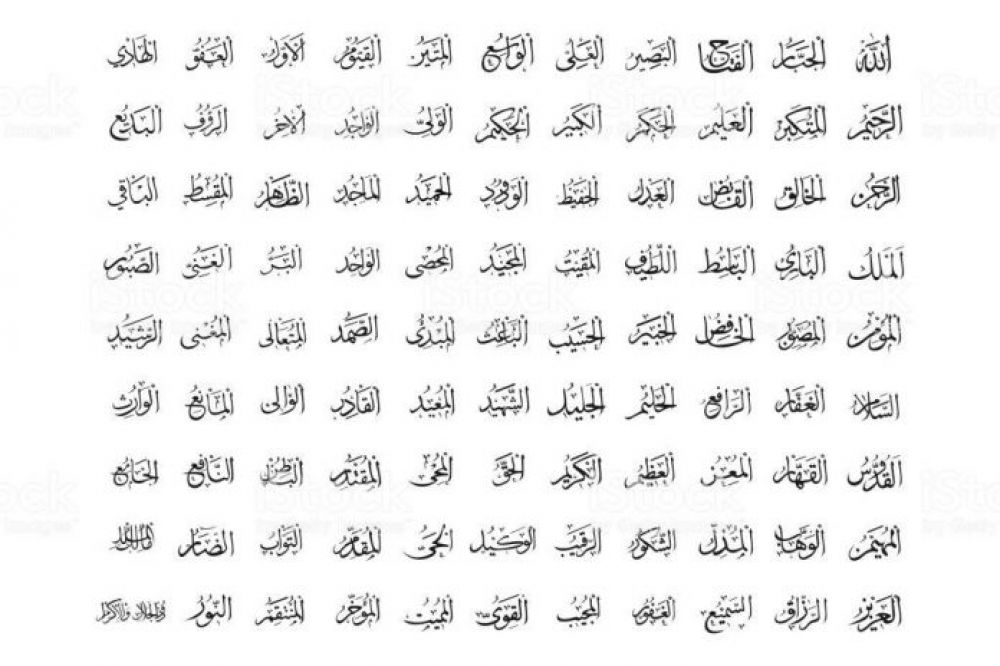 الله الجبار الفتاح البصير العلي الواسع المتين القيوم الأول العفو الهادي
الرحيم المتكبر العليم الحكم الكبير الحكيم الولي الواجد الآخر الرؤف البديع
الرحمن الخالق القابض العدل الحفيظ الودود الحميد الماجد الظاهر المقسط الباقي
الملك البارئ الباسط اللطيف المقيت المجيد المحصى الواحد البر الغنى الصبور
المؤمن المصور الخافض الخبير الحسيب الباعث المبدئ الصمد المتعالى المغنى الرشيد
السلام الغفار الرافع الحليم الجليل الشهيد المعيد القادر الوالى المانع الوارث
القدوس القهار المعز العظيم الكريم الحق المحيى المقتدر الباطن النافع الجامع
المهيمن الوهاب المذل الشكور الرقيب الوكيل الحى المقدم التواب الضار مالك الملك
العزيز الرزاق السميع الغفور المجيب القوى المميت المؤخر المنتقم النور ذو الجلال والاكرام
iStock
by Getty Images